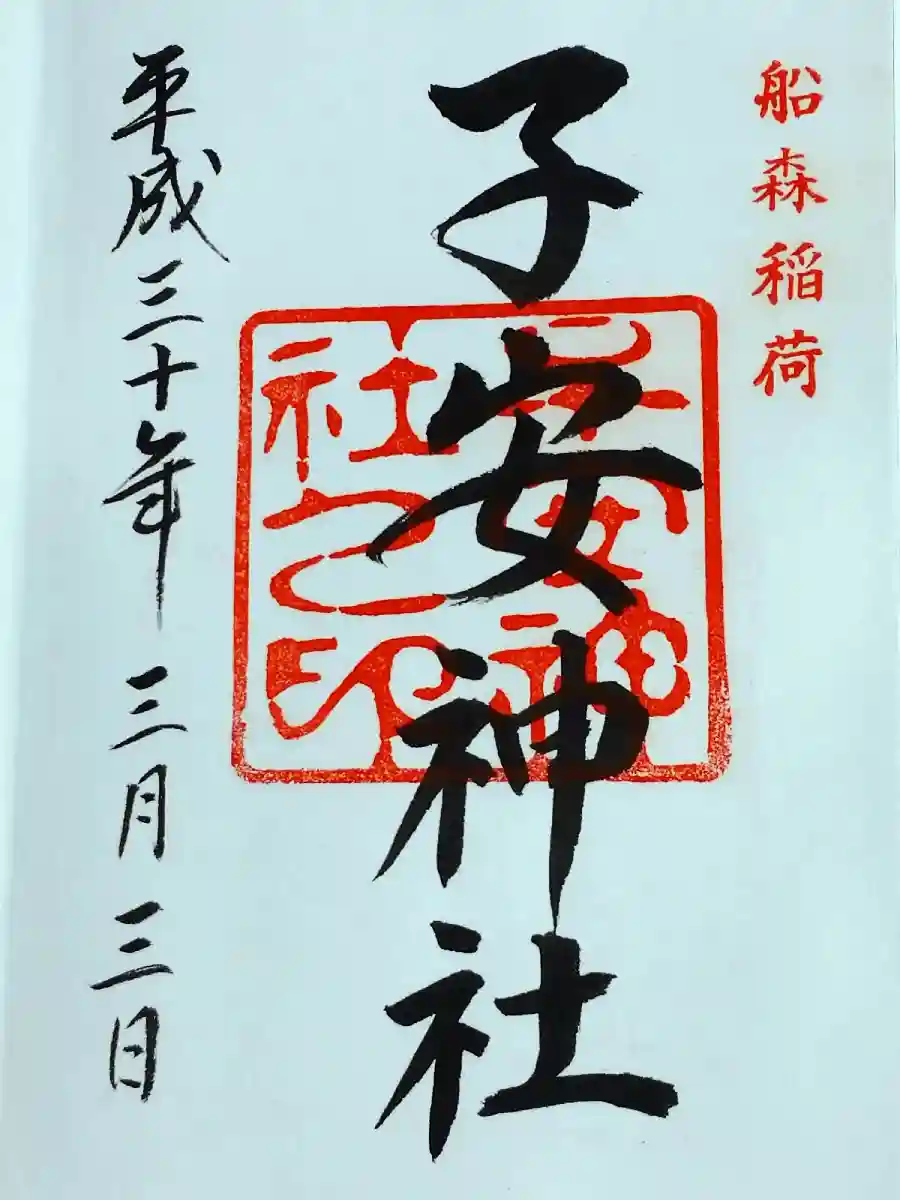 船森稲荷
子安神社
子安神社之印
平成三十年 三月 三日